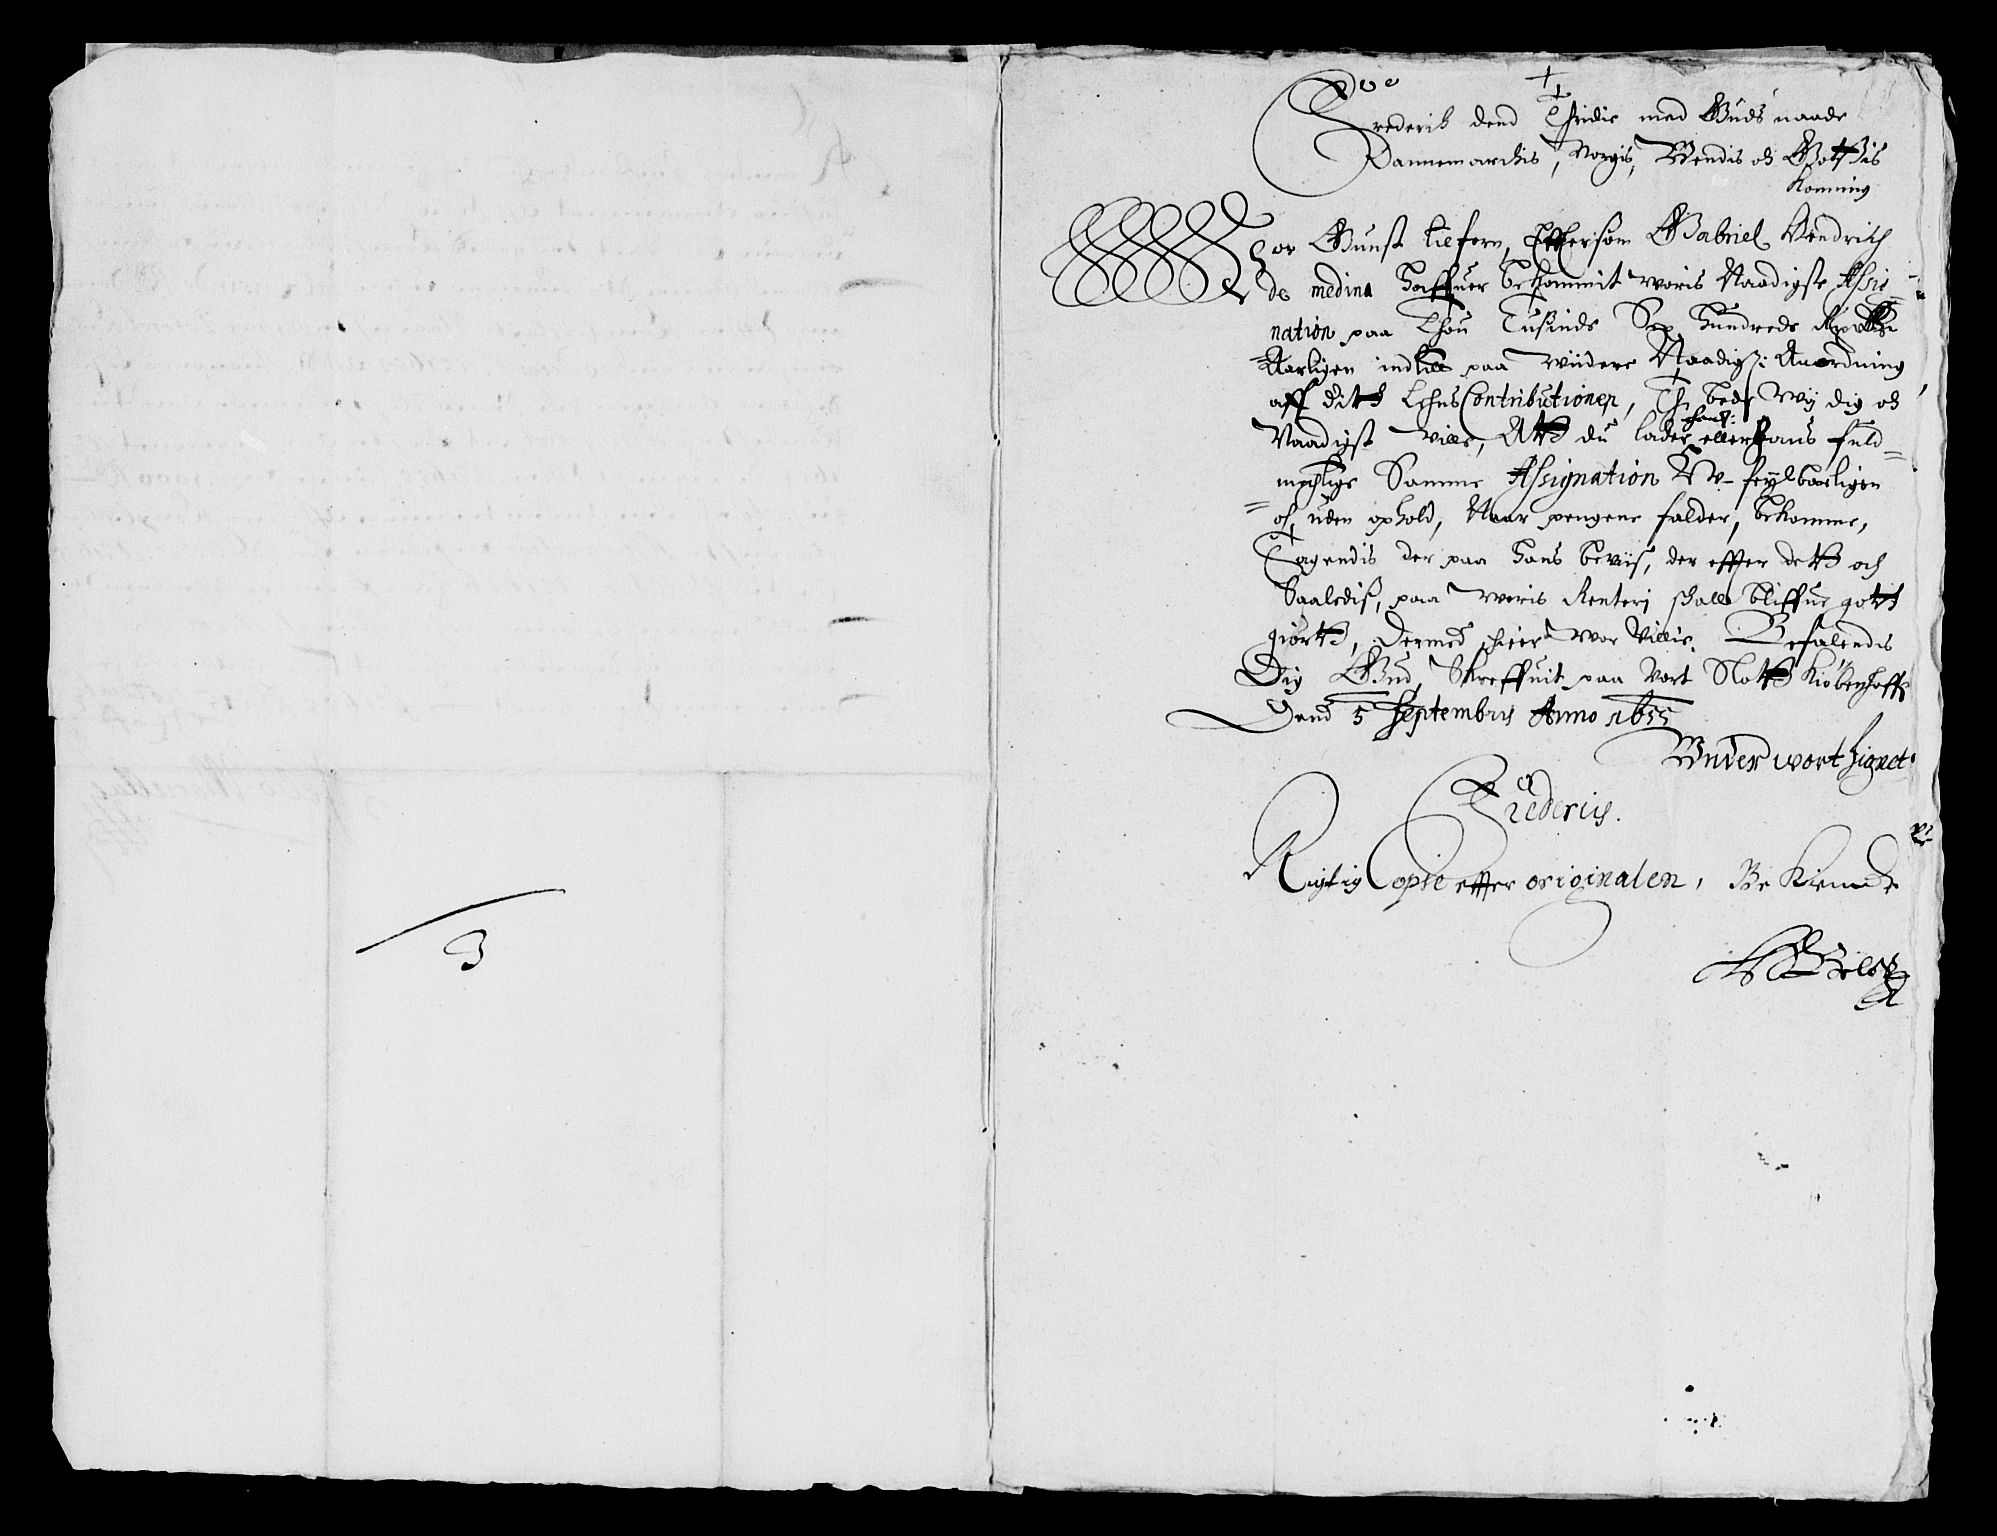 3
Frederich dend Tridie med Guds naade
Dannemarchis, Norgis, Wendis och Gotthis
Konning
Vor Gunst tilforn, Eftersom Gabriel Hendrich
de medina haffuer bekommit woris Naadigste Assig=
nation paa Thou Tusinde Sex hundrede
Aarligen indtill paa widere Naadigst Anordning
aff dith Lehns Contributioner, Thi bede Wij dig och
Naadigst ville, Att du lader hannem eller hans fuld=
megtige Samme Assignation Uu-feylbaarligen
och uden ophold, Naar pengene falder, bekomme,
Tagendis der paa hans beviis, der effter dett och
Saaledis, paa woris Renterj skall bliffue gott
giortt, Dermed skeer wor Villie. Befalendis
Dig Gud, Skreffuit paa Vort Slott Kiøbenhaffn
Dend 5 Septembris Anno 1655
Under wort Signet
Friderich.
Rigtig Copie effter originalen, Be Kiende